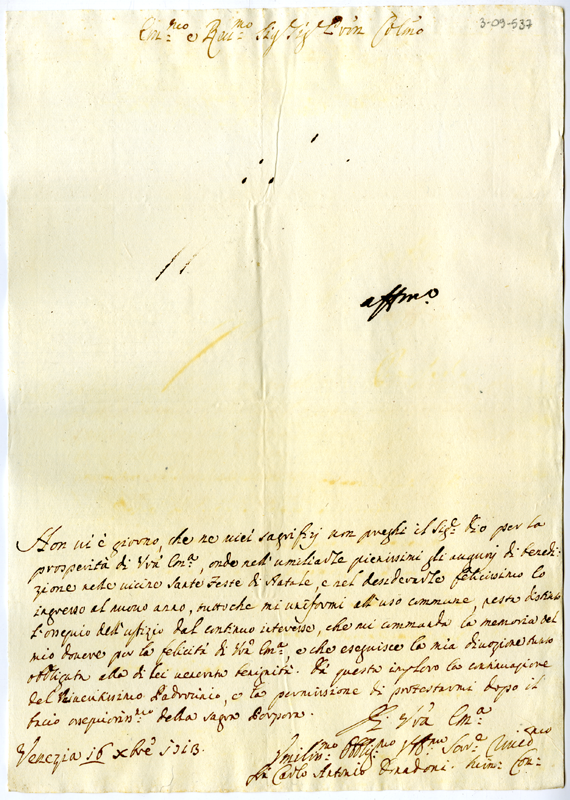 3-09-537
Em.mo e Rev.mo Sig. Sig. Pron Colmo
affmo
Non vi è giorno, che ne miei sagrifizj non preghi il Sig.r Dio per la
prosperità di Vra Em.a, onde nell'umiliarle pienissimi gli augurj di benedi-
zione nelle vicine Sante Feste di Natale, e nel desiderarle felicissimo lo
ingresso al nuovo anno, tutto che mi uniformi all'uso commune, resta distinto
l'ossequio dell'uffizio dal continuo interesse, che mi commanda la memoria del
mio dovere per la felicità di Vra Em.a, e che eseguisce la mia divozione tanto
obligata alla di lei venerata benignità. Da questa imploro la continuazione
del Padrocinio, e la permissione di protestarmi dopo il
bacio ossequiosis.mo della Sagra Porpora.
Di Vra Em.a
Venezia 16 Xbre 1713.
Umilis.mo Oblig.mo Serv.
Fr. Carlo Antonio Donadoni. Min. Con.